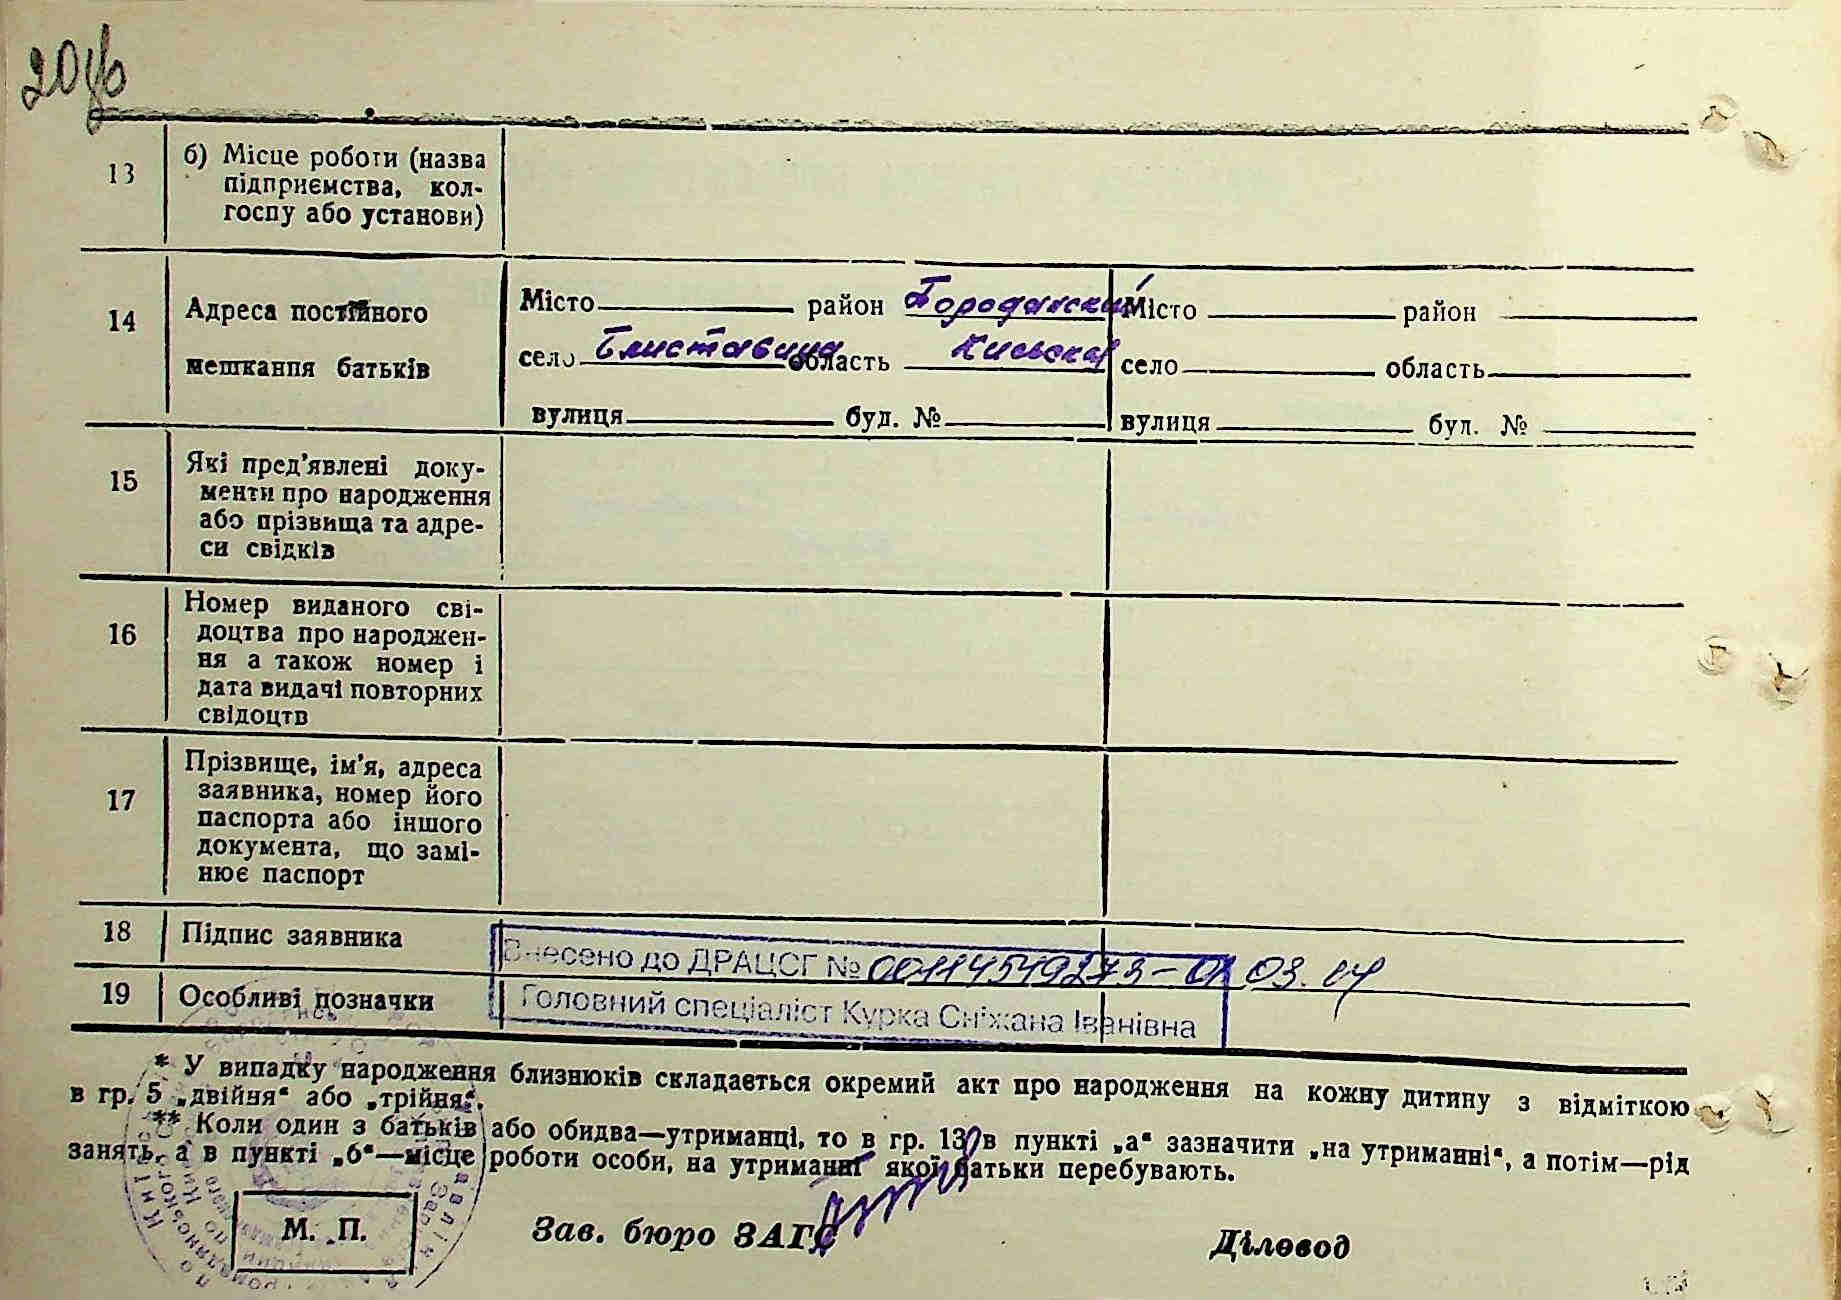 13
б) Місце роботи (назва
підприємства, кол-
госпу або установи)
14
Адреса постійного
мешкання батьків
Місто район Бородянський
село Блиставиця область Київська
вулиця буд. №
Місто район
село область
вулиця буд. №
15
Які пред'явлені доку-
менти про народження
або прізвища та адре-
си свідків
16
Номер виданого сві-
доцтва про народжен-
ня а також номер і
дата видачі повторних
свідоцтв
17
Прізвище, ім'я, адреса
заявника, номер його
паспорта або іншого
документа, що замі-
нює паспорт
18 Підпис заявника
Внесено до ДРАЦСГ № 00114519273-01 03.04
19 Особливі позначки
Головний спеціаліст Курка Сніжана Іванівна
* У випадку народження близнюків складається окремий акт про народження на кожну дитину з відміткою
в гр. 5 „двійня“ або „трійня“.
** Коли один з батьків або обидва—утриманці, то в гр. 13 в пункті „а“ зазначити „на утриманні“, а потім—рід
занять, а в пункті „б“—місце роботи особи, на утриманні якої батьки перебувають.
М. П.
Зав. бюро ЗАГС
Діловод